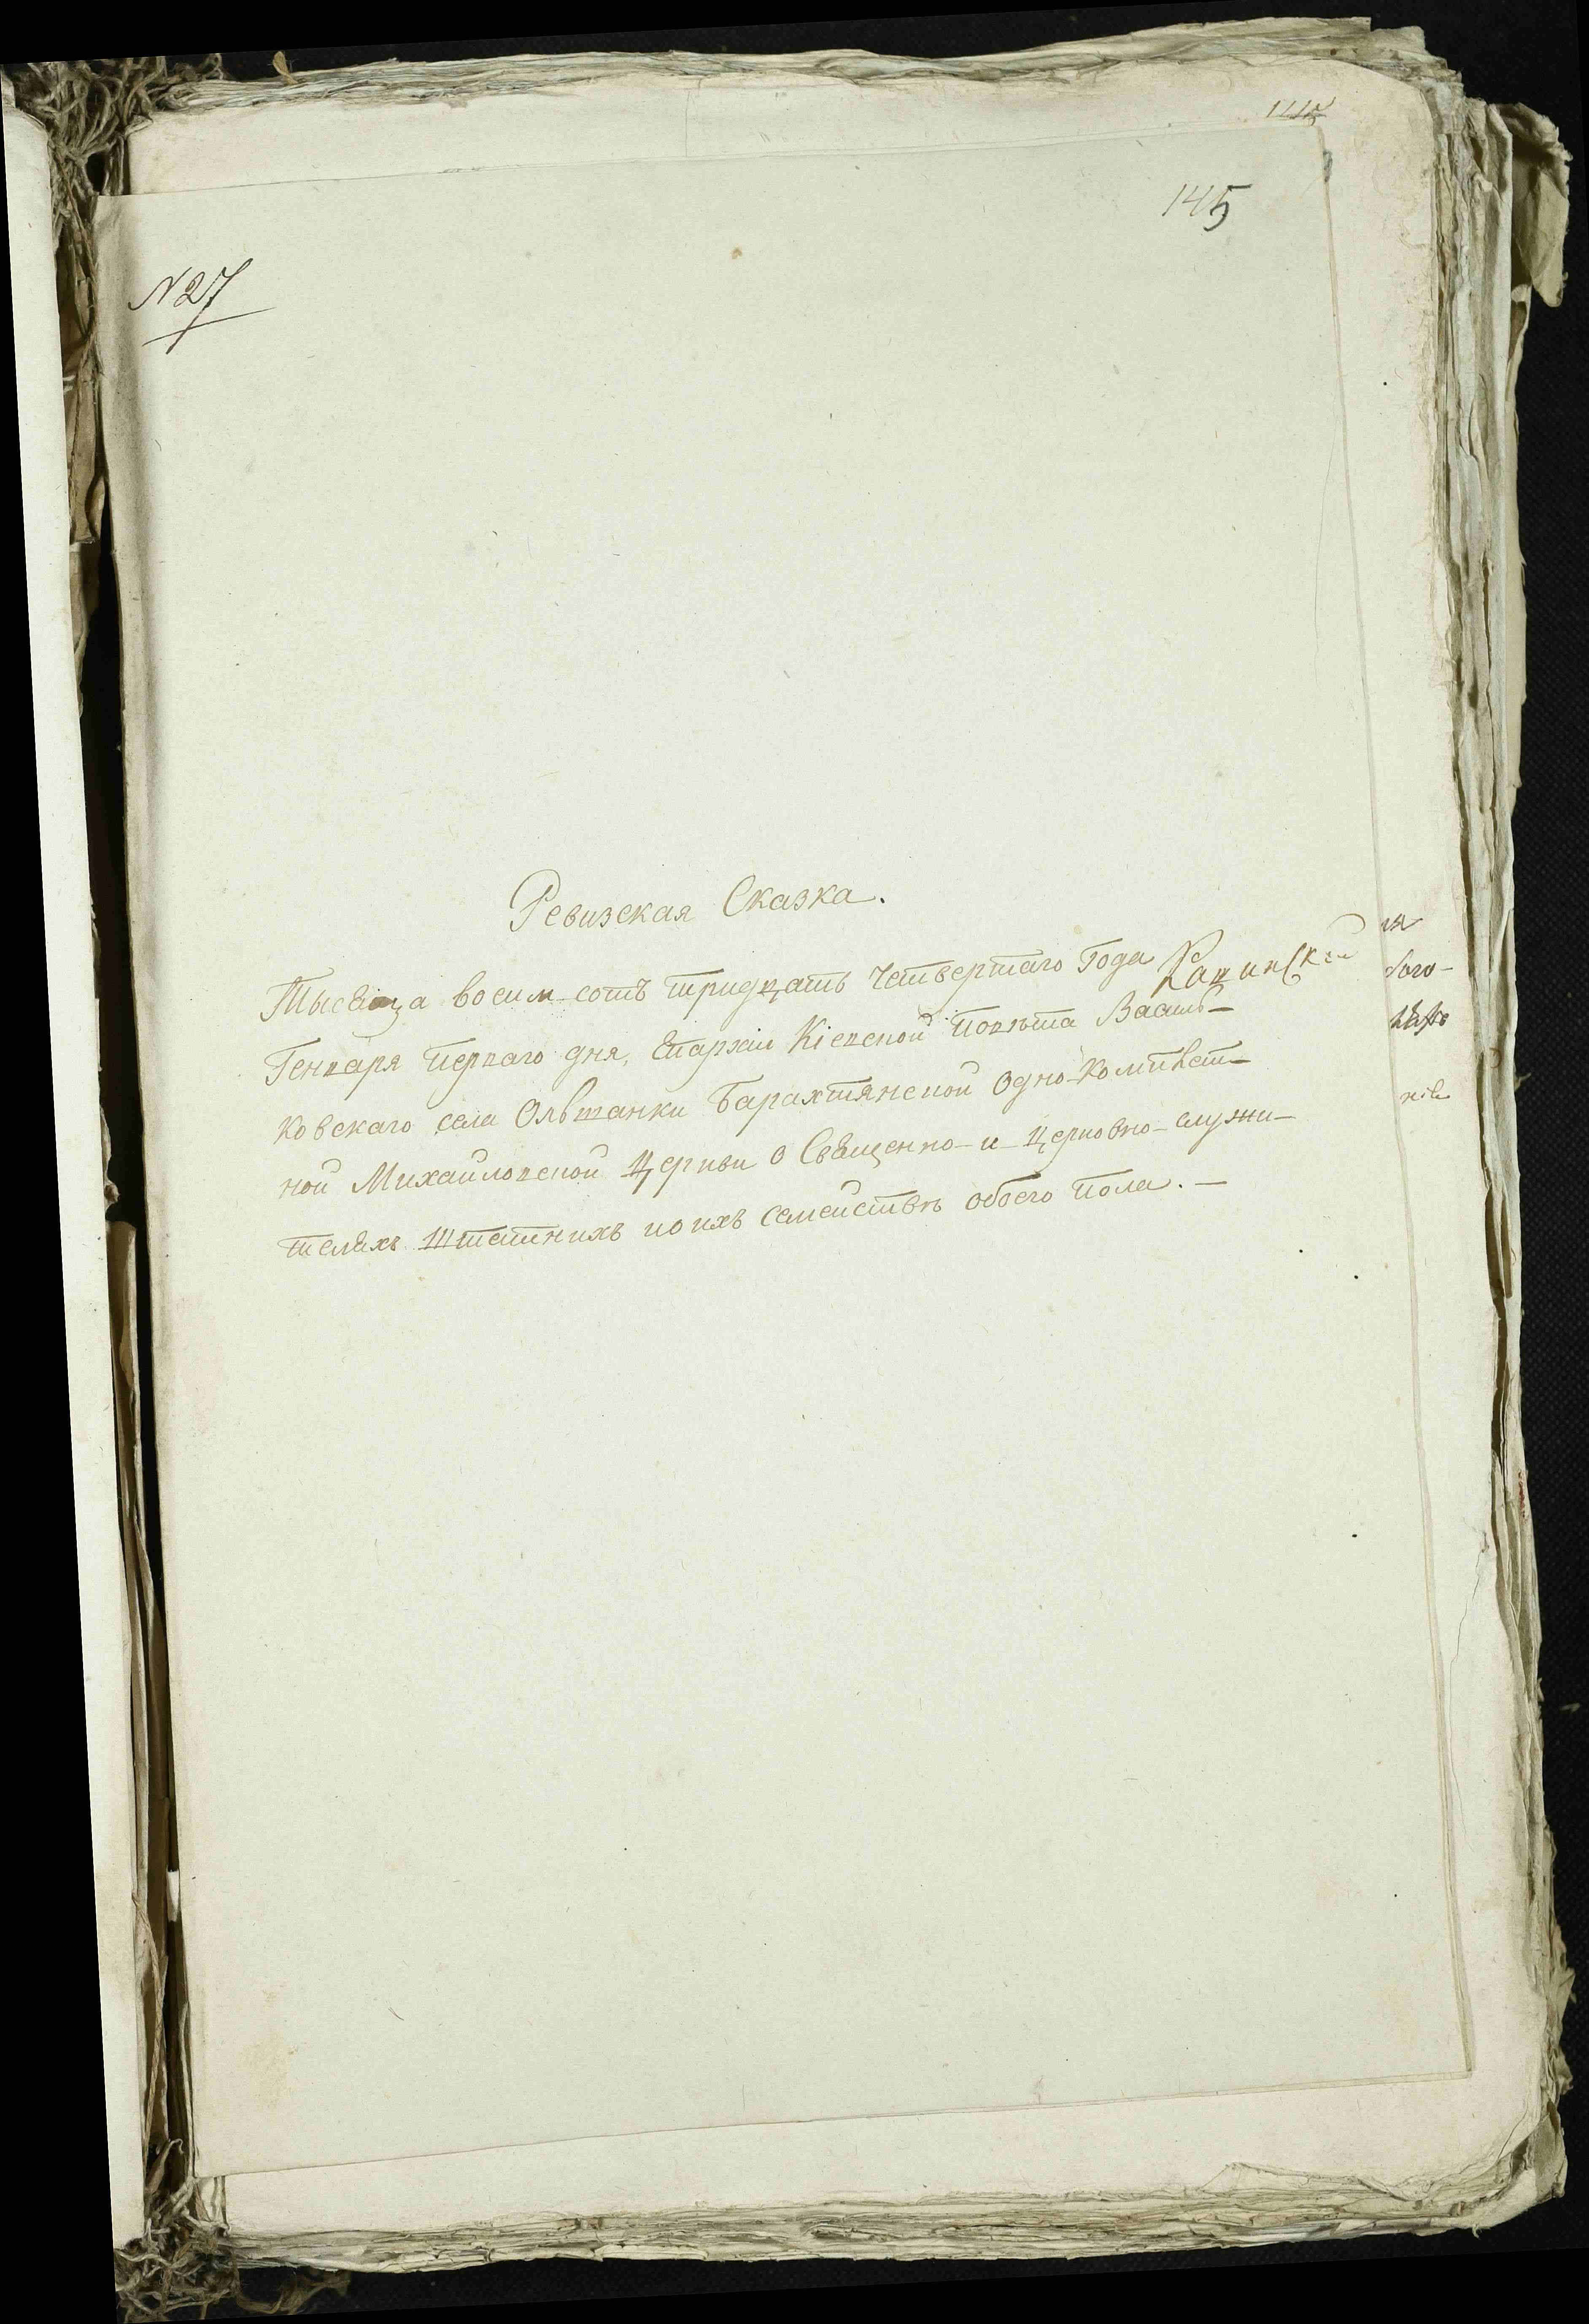 1115
145
№ 27
Ревизская Сказка.
Тысяща восим сотъ тридцать Четвертаго Года
Генваря перваго дня, Епархіи Кіевской Повѣта Василь-
ковскаго села Ольшанки Барахтянской Одно-Комплект-
ной Михайловской Церкви о Священно- и Церковно-служи-
теляхъ Штатнихъ и о ихъ Семействѣ обоего пола. -